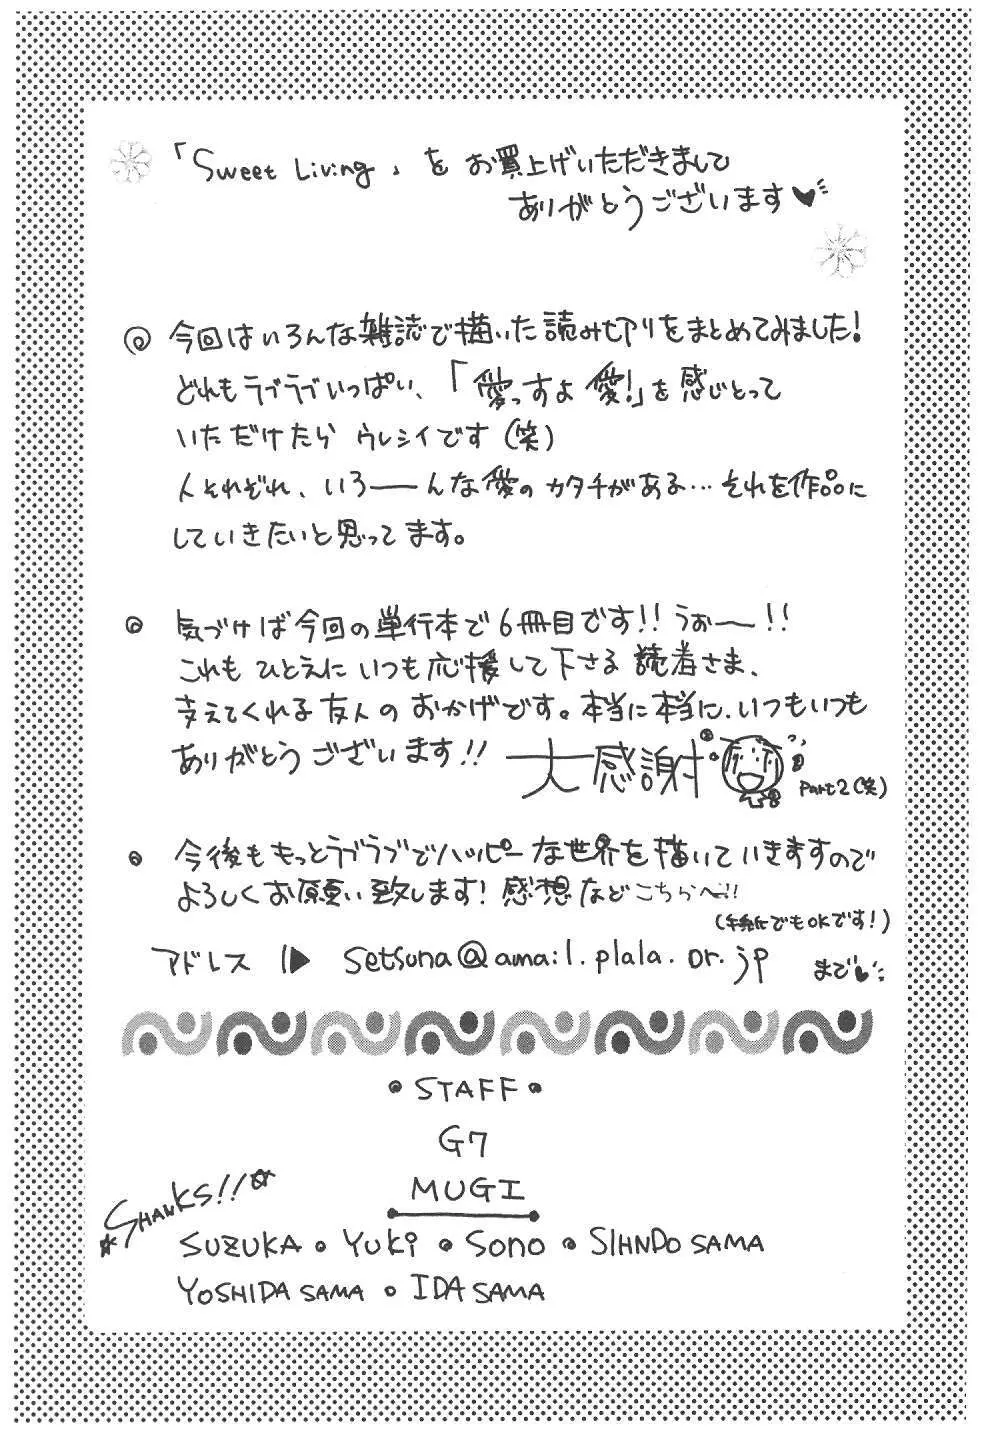 「Sweet Living」を お買上げいただきまして
ありがとうございます♥
◎ 今回はいろんな雑誌で描いた読み切りをまとめてみました!
どれもラブラブいっぱい、「愛っすよ 愛!」を感じとって
いただけたら ウレシイです(笑)
人それぞれ、いろ――んな愛の カタチがある… それを作品に
していきたいと思ってます。
◎ 気づけば今回の単行本で6冊目です!! うぉ〜!!
これも ひとえに いつも応援して下さる 読者さま、
支えてくれる友人の おかげです。本当に本当に、いつもいつも
ありがとうございます!! 大感謝
Part2(笑)
◎ 今後も もっとラブラブでハッピーな世界を描いていきますので
よろしくお願い致します! 感想などこちらへ!!
(手紙でもOKです!)
アドレス ▶ setsuna@amail.plala.or.jp まで♥
• STAFF •
G7
MUGI
☆SHANKS!!☆
SUZUKA • YUKi • SONO • SIHNDO SAMA
YOSHIDA SAMA • IDA SAMA